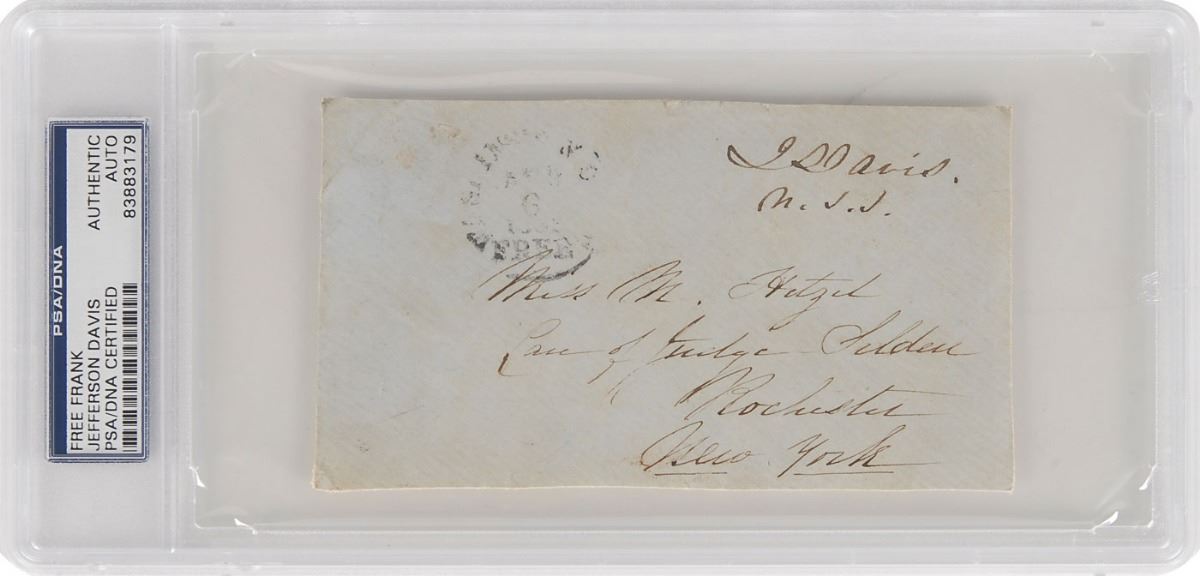 PSA/DNA
FREE FRANK
JEFFERSON DAVIS
PSA/DNA CERTIFIED
AUTHENTIC
AUTO
83883179
6
FREE
J Davis.
U.S.S.
Miss M. Hetzel
Care of Judge Selden
Rochester
New York